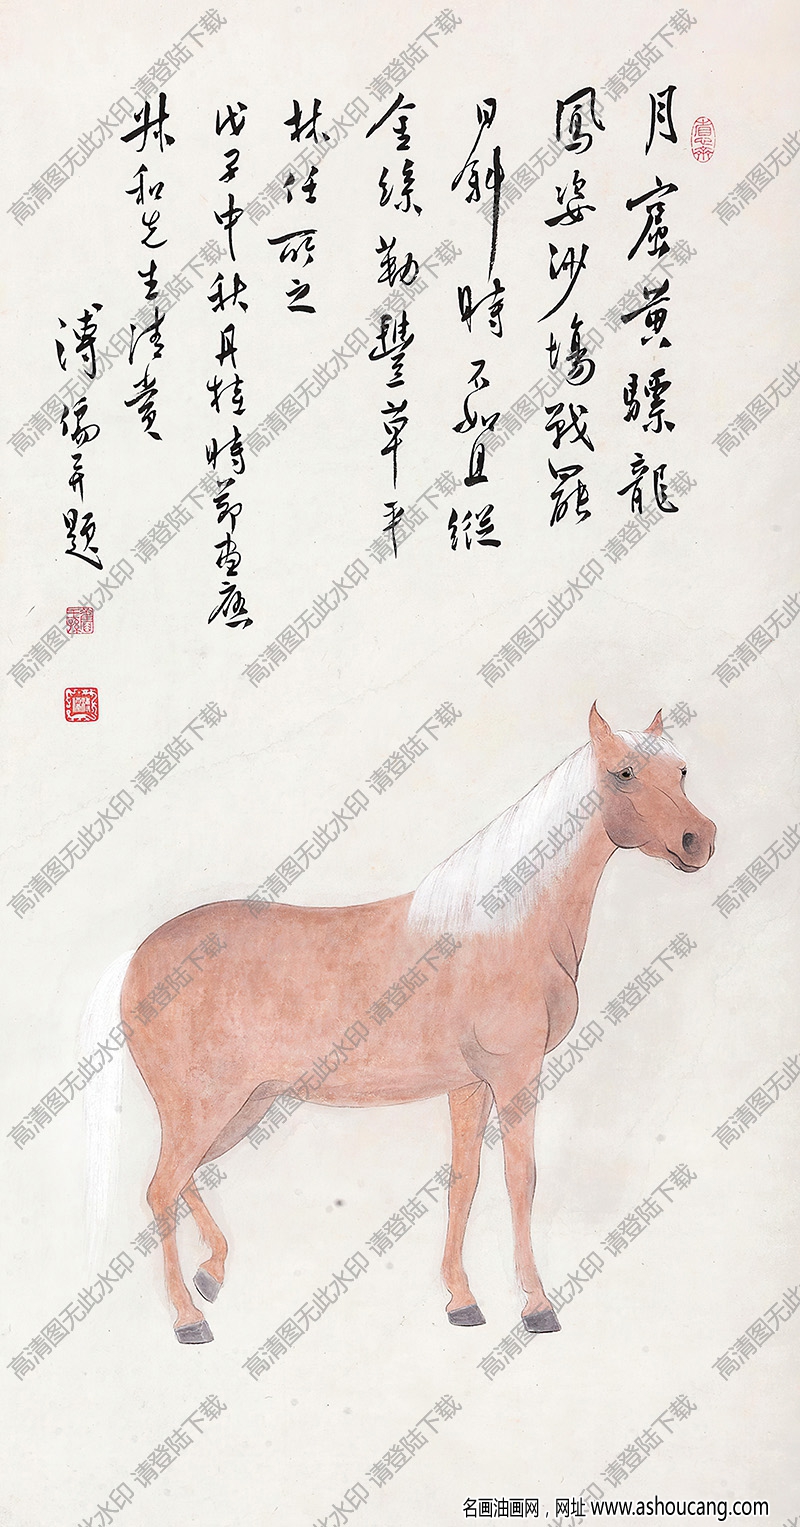 月窟黄骠龍
鳳姿沙場戰罷
日斜時不如且縱
金絛勒豐草平
林任所之
戊子中秋丹桂時節画應
和先生清賞
溥僑并題
高清图无此水印 请登陆下载
名画油画网，网址 www.ashoucang.com